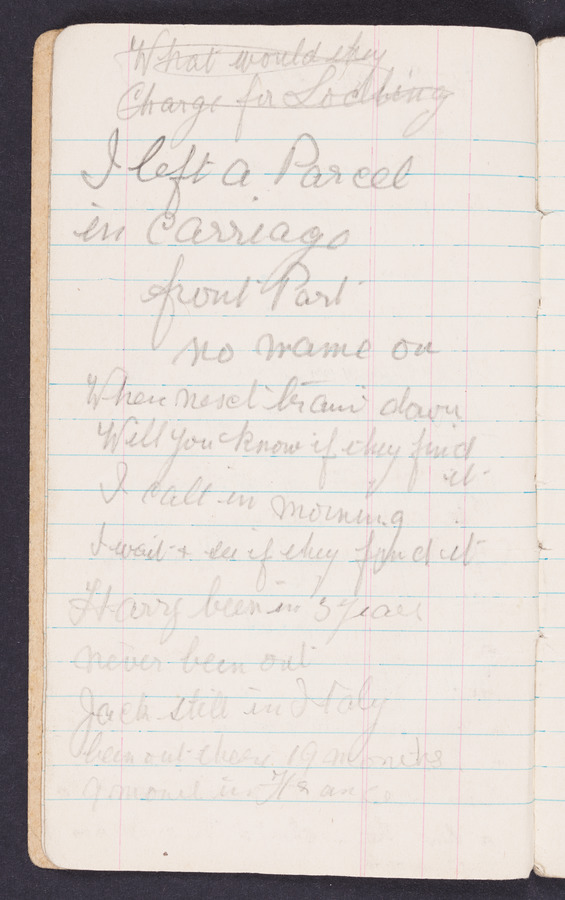 What would they
Charge for Lodbing
I left a Parcel
in Carriage
front Part
no name on
When next train down
Will you know if they find
it
I call in morning
I wait + see if they find it
Harry been in 3 years
never been out
Jack still in Italy
been out there 19 months
9 month in France